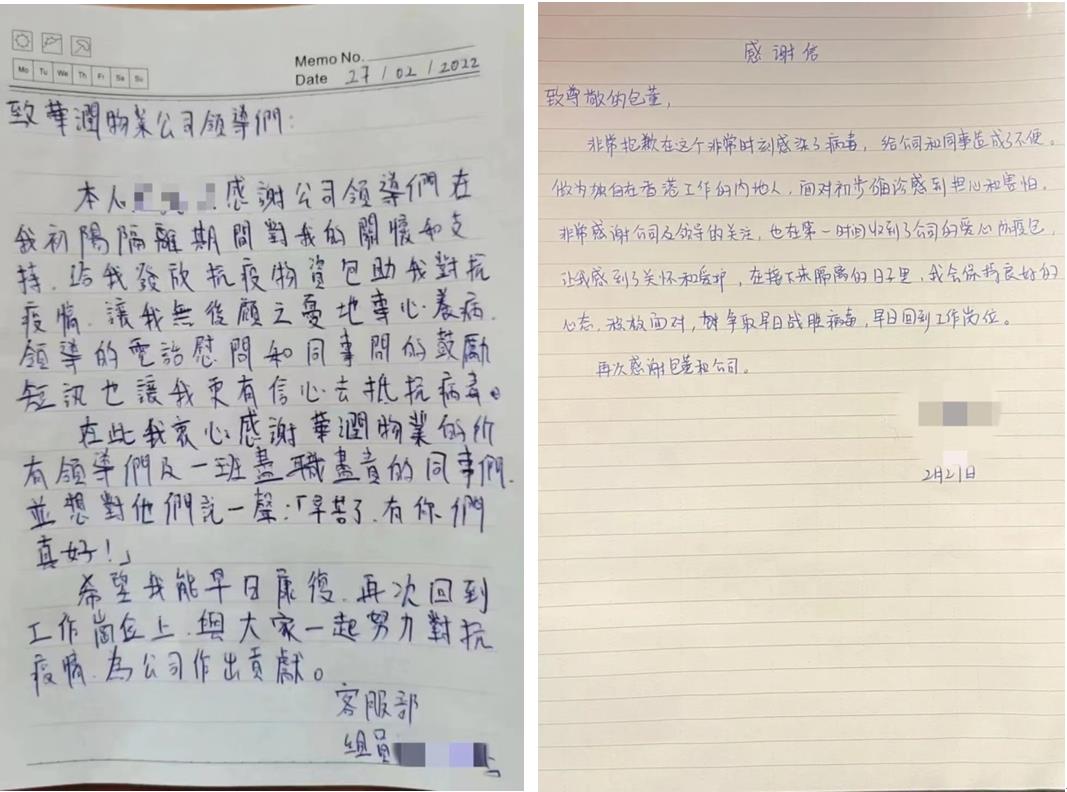 Memo No.
Mo Tu We Th Fr Sa Su
Date 27 / 02 / 2022
致華潤物業公司領導們:
本人感謝公司領導們在
我初陽隔離期間對我的關懷和支
持.給我發放抗疫物資包助我對抗
疫情.讓我無後顧之憂地專心養病.
領導的電話慰問和同事間的鼓勵
短訊也讓我更有信心去抵抗病毒。
在此我衷心感謝華潤物業的所
有領導們及一班盡職盡責的同事們.
並想對他們說一聲:「辛苦了.有你們
真好!」
希望我能早日康復.再次回到
工作崗位上.與大家一起努力對抗
疫情.為公司作出貢獻。
客服部
組員
感谢信
致尊敬的包董,
非常抱歉在这个非常时刻感染了病毒,给公司和同事造成了不便。
做为独自在香港工作的内地人,面对初步确诊感到担心和害怕.
非常感谢公司及领导的关注,也在第一时间收到了公司的爱心防疫包,
让我感到了关怀和爱护,在接下来隔离的日子里,我会保持良好的
心态,积极面对,争取早日战胜病毒,早日回到工作岗位。
再次感谢包董和公司。
2月27日